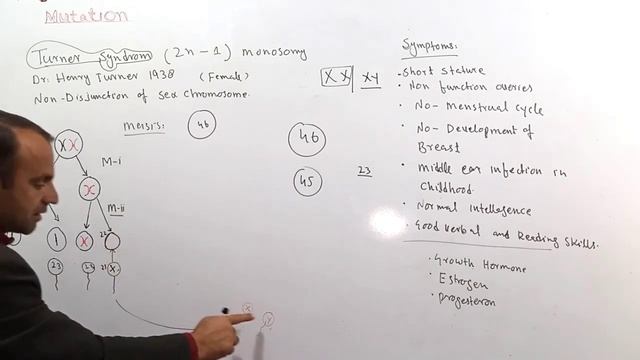 Mutation
Turner Syndrom (2n-1) monosomy
Dr. Henry Turner 1938 (Female)
Non-Disjunction of sex chromosome.
meisis: 46
XX
M-i
X
M-ii
1 X 22
23 24 21 X
46
45
XX | XY
23
Symptoms:
• Short stature
• Non function overies
• No- Menstrual cycle
• No- Development of
Breast
• middle ear infection in
childhood.
• Normal Intellegence
• Good Verbal and Reading Skills.
• Growth Hormone
• Estrogen
• Progesteron
X
Y